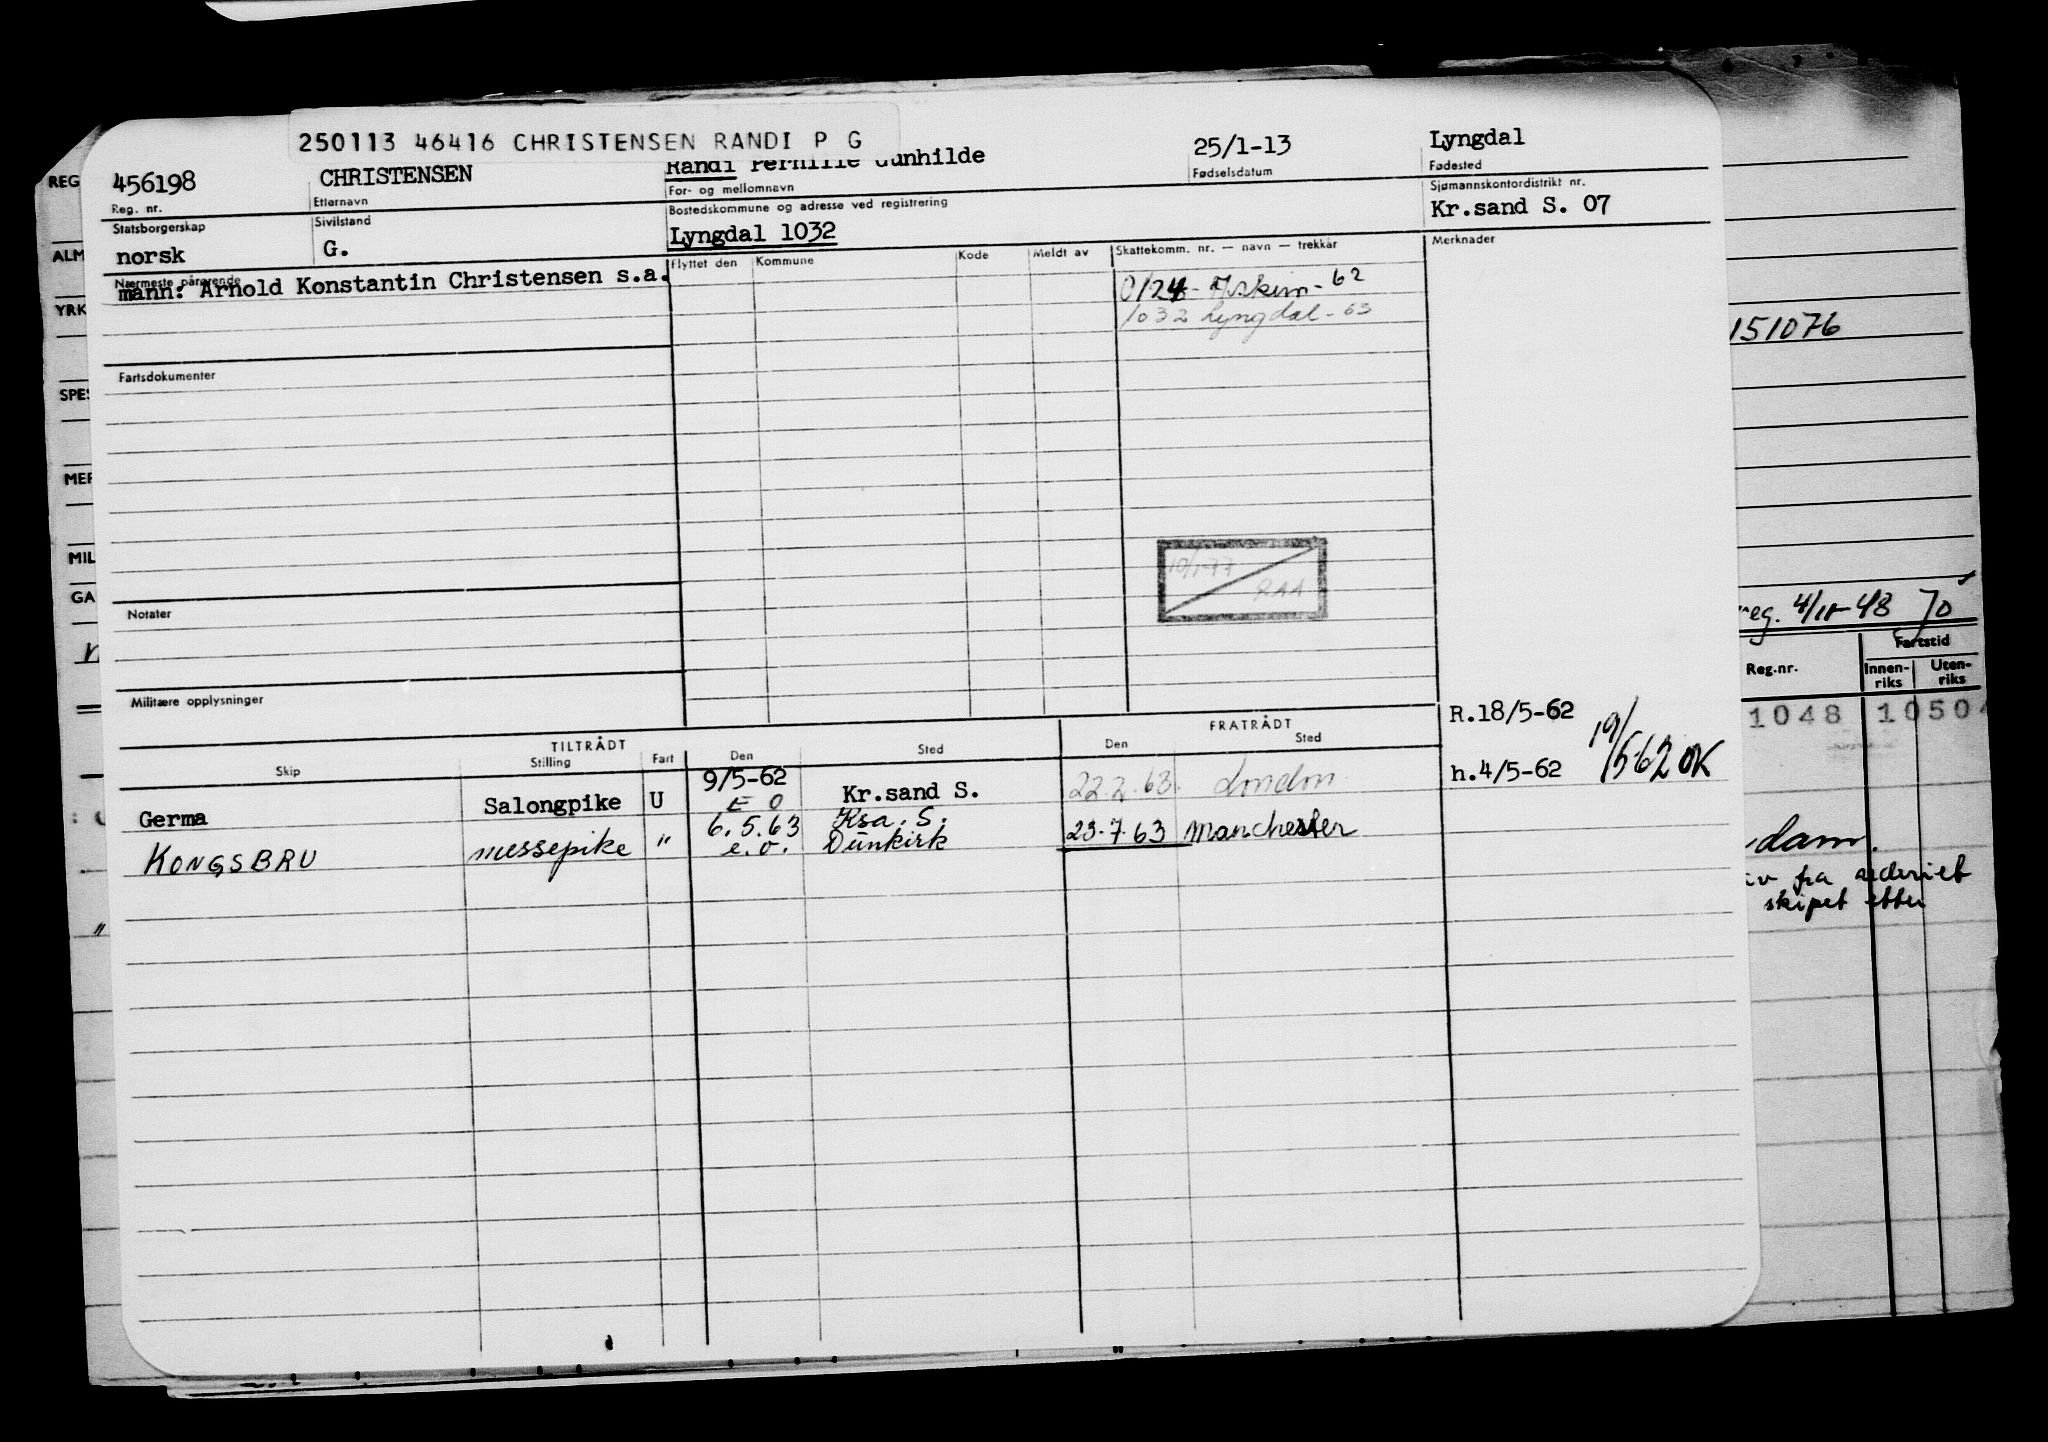 250113 46416 CHRISTENSEN RANDI P G
456198 CHRISTENSEN Randi Pernille Gunhilde 25/1-13 Lyngdal
Reg. nr. Etternavn For- og mellomnavn Fødselsdatum Fødested
Statsborgerskap Sivilstand Bostedskommune og adresse ved registrering Sjømannskontordistrikt nr.
norsk G. Lyngdal 1032 Kr.sand S. 07
Nærmeste pårørende Flyttet den Kommune Kode Meldt av Skattekomm. nr. — navn — trekkår Merknader
mann: Arnold Konstantin Christensen s.a.
0124 - Askim - 62
1032 Lyngdal - 63
Fartsdokumenter
10/1-77
RAA
Notater
Militære opplysninger
R.18/5-62
TILTRÅDT FRATRÅDT
Skip Stilling Fart Den Sted Den Sted
h.4/5-62 19/5-62 OK
9/5-62
Germa Salongpike U E O Kr.sand S. 22.2.63. London
6.5.63 Ksa. S.
KONGSBRU messepike " e.o. Dünkirk 23.7.63 Manchester
REG
ALM
YRK
SPES
MER
MIL
GA
151076
reg. 4/11-48 70
Fartstid
Reg.nr. Innen-riks Uten-riks
1048 10504
dam.
fra rederiet
skipet etter
"